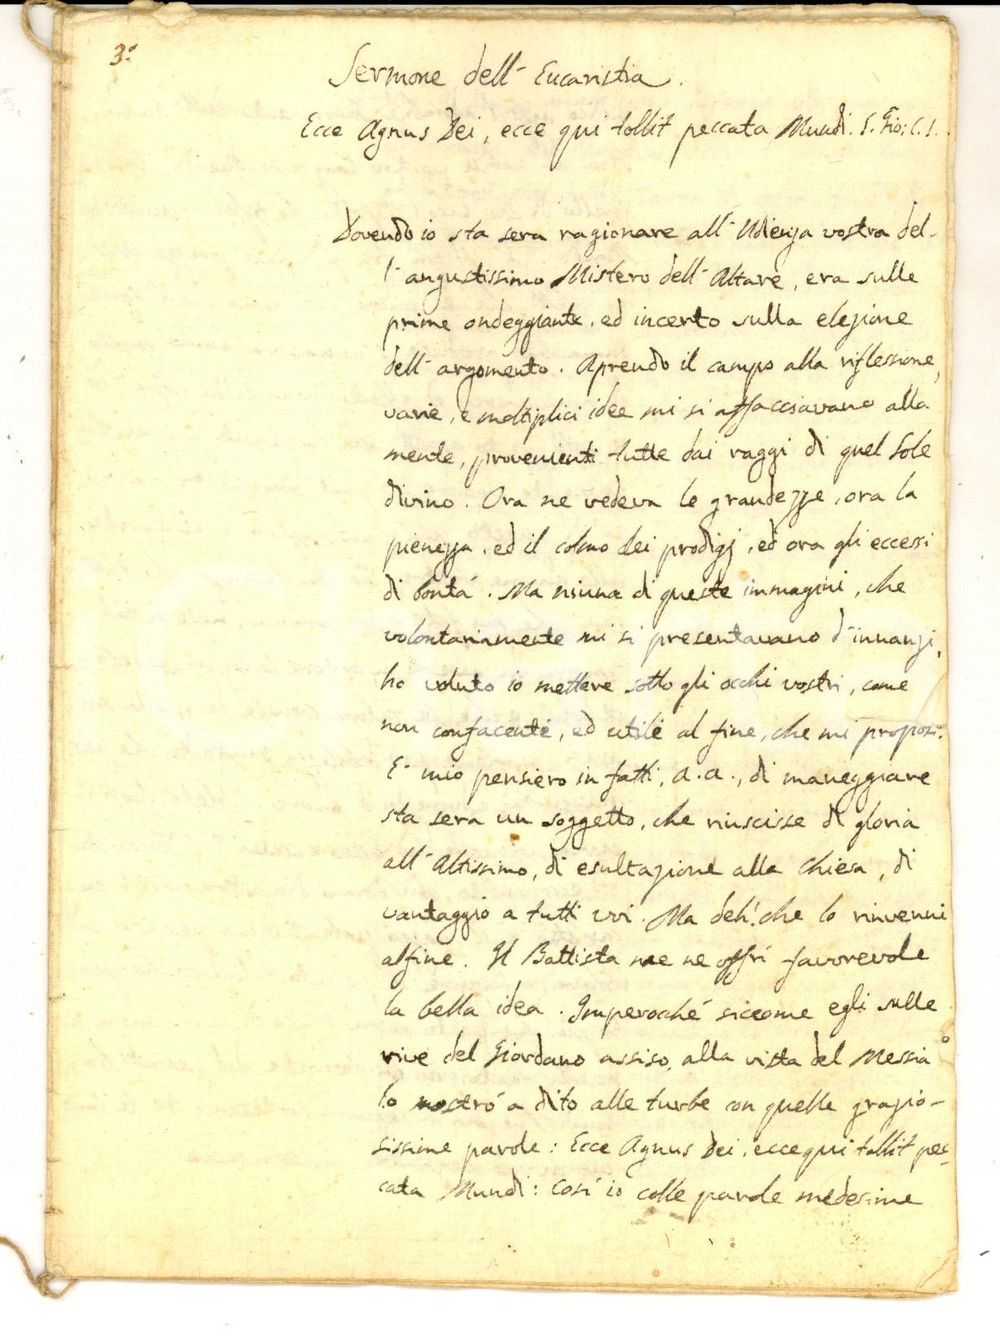 3°
Sermone dell' Eucaristia.
Ecce Agnus Dei, ecce qui tollit peccata Mundi. S. Gio: C. 1.
Dovendo io sta sera ragionare all' Udienza vostra del-
l' augustissimo Mistero dell' Altare, era sulle
prime ondeggiante, ed incerto sulla elezione
dell' argomento. Aprendo il campo alla riflessione,
varie, e moltiplici idee mi si affacciavano alla
mente, provenienti tutte dai raggi di quel Sole
divino. Ora ne vedeva le grandezze, ora la
pienezza, ed il colmo dei prodigj, ed ora gli eccessi
di bontá. Ma niuna di queste immagini, che
volontariamente mi si presentavano d'innanzi,
ho voluto io mettere sotto gli occhi vostri, come
non confacenté, ed utilé al fine, che mi proposi.
E' mio pensiero in fatti, a. a., di maneggiare
sta sera un soggetto, che riuscisse di gloria
all' Altissimo, di esultazione alla Chiesa, di
vantaggio a tutti voi. Ma deh! che lo rinvenni
alfine. Il Battista me ne offrí favorevole
la bella idea. Imperocché siccome egli sulle
rive del Giordano assiso, alla vista del Messia
lo mostró a dito alle turbe con quelle grazio-
sissime parole: Ecce Agnus Dei, ecce qui tollit pec-
cata Mundi: Cosí io colle parole medesime